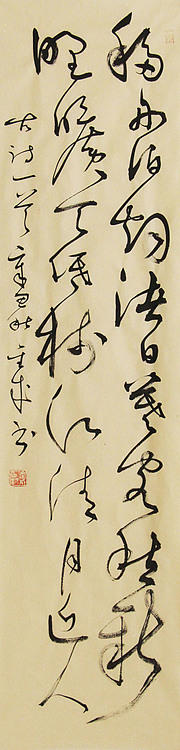 移舟泊烟渚日暮客愁新
野曠天低樹江清月近人
古詩一首 秋 書